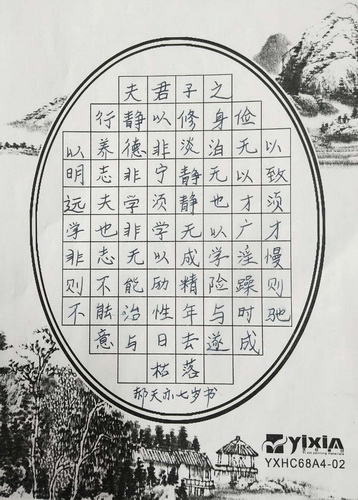 夫君子之
行静以修身俭
以养德非淡泊无以
明志非宁静无以致
远夫学须静也才须
学也非学无以广才
非志无以成学淫慢
则不能励精险躁则
不能治性年与时驰
意与日去遂成
枯落
郝天亦七岁书
yixin
YXHC68A4-02